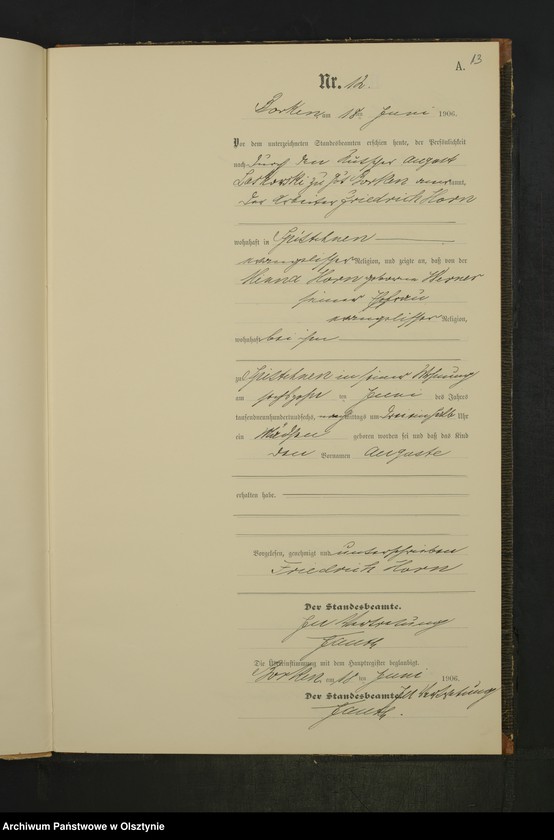 A. 13
Nr. 12.
Borken, am 18 Juni 1906.
Vor dem unterzeichneten Standesbeamten erschien heute, der Persönlichkeit
nach durch den Kutscher August
zu Borken anerkannt,
der Arbeiter Friedrich Horn
wohnhaft in
evangelischer Religion, und zeigte an, daß von der
Horn geborene Werner
seiner Ehefrau
evangelischer Religion,
wohnhaft bei ihm
zu in seiner Wohnung
am sechszehn ten Juni des Jahres
tausendneunhundertundsechs, nachmittags um dreieinhalb Uhr
ein Mädchen geboren worden sei und daß das Kind
den Vornamen Auguste
erhalten habe.
Vorgelesen, genehmigt und unterschrieben
Friedrich Horn
Der Standesbeamte.
In Vertretung
Die Übereinstimmung mit dem Hauptregister beglaubigt.
Borken, am 18 ten Juni 1906.
Der Standesbeamte. In Vertretung
Archiwum Państwowe w Olsztynie